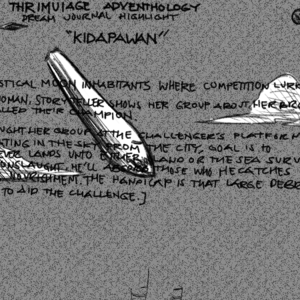 THRIMUIAGE ADVENTHOLOGY
DREAM JOURNAL HIGHLIGHT
"KIDAPAWAN"
STICAL MOON INHABITANTS WHERE COMPETITION LURK
WOMAN, STORYTELLER SHOWS HER GROUP ABOUT HER
CALLED THEIR CHAMPION.
UGHT HER GROUP AT THE CHALLENGER'S PLATFORM
ATING IN THE SKY FROM THE CITY, GOAL IS TO
EVER LANDS UNTO EITHER ISLAND OR THE SEA SURV
ONSLAUGHT. HE'LL THOSE WHO HE CATCHES
NOURISHMENT. THE HANDICAP IS THAT LARGE DEBR
TO AID THE CHALLENGE.]